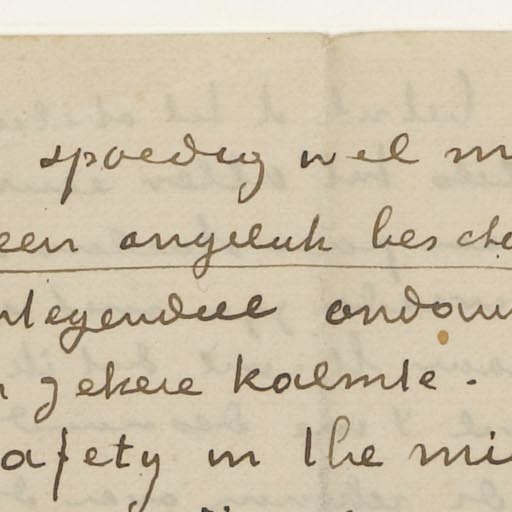 spoedig wel m
een ongeluk besch
ntegendeel ondan
n zekere kalmte.
afety in the mi